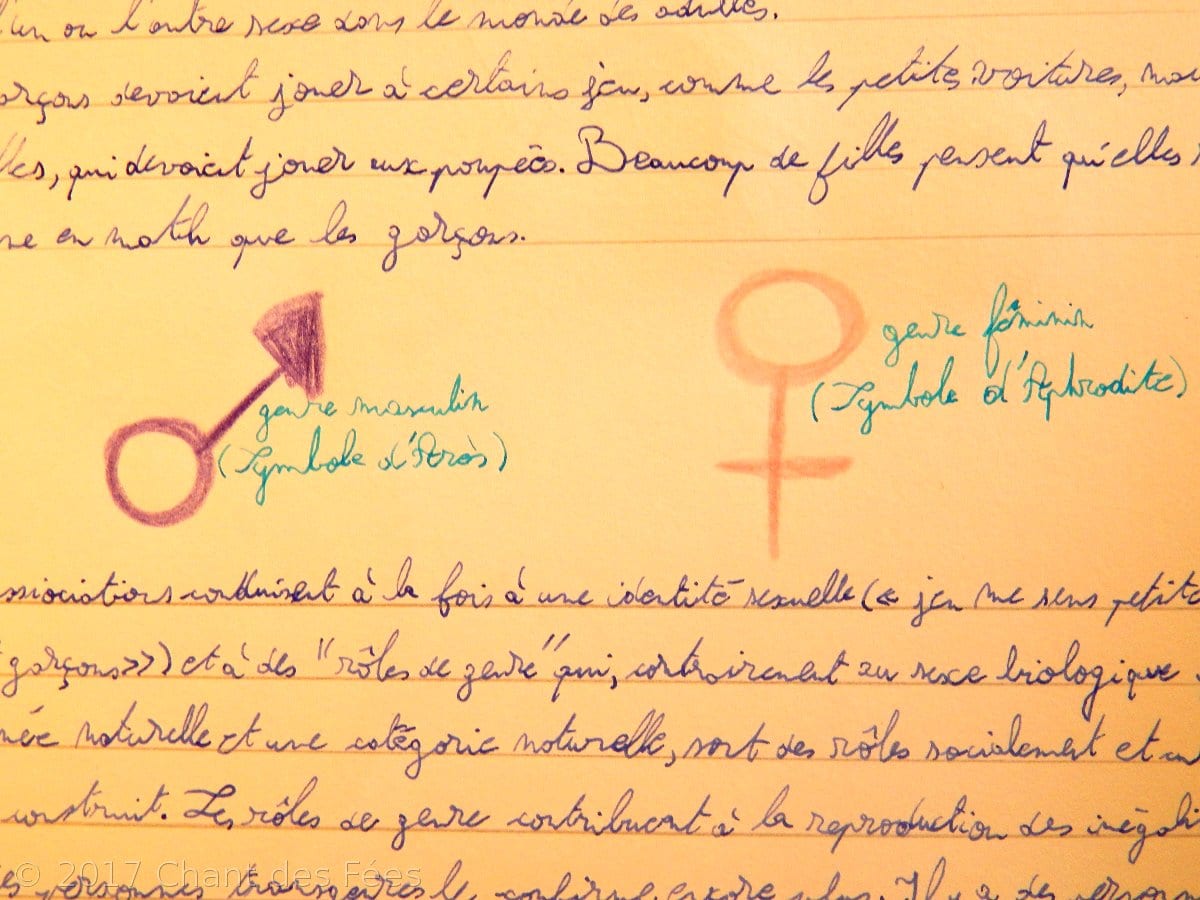 l'un ou l'autre sexe dans le monde des adultes.
garçons devaient jouer à certains jeu, comme les petites voitures, mais
lles, qui devaient jouer aux poupées. Beaucoup de filles pensent qu'elles
ne en math que les garçons.
genre masculin
(Symbole d'Arès)
genre féminin
(Symbole d'Aphrodite)
ssiociations conduisent à la fois à une identité sexuelle (« jeu me sens petite
garçons») et à des "rôles de genre" qui, contrairement au sexe biologique
née naturelle et une catégorie naturelle, sont des rôles socialement et cu
construit. Les rôles de genre contribuent à la reproduction des inégali
es personnes transgenres le confirme encore plus. Il y a des
© 2017 Chant des Fées